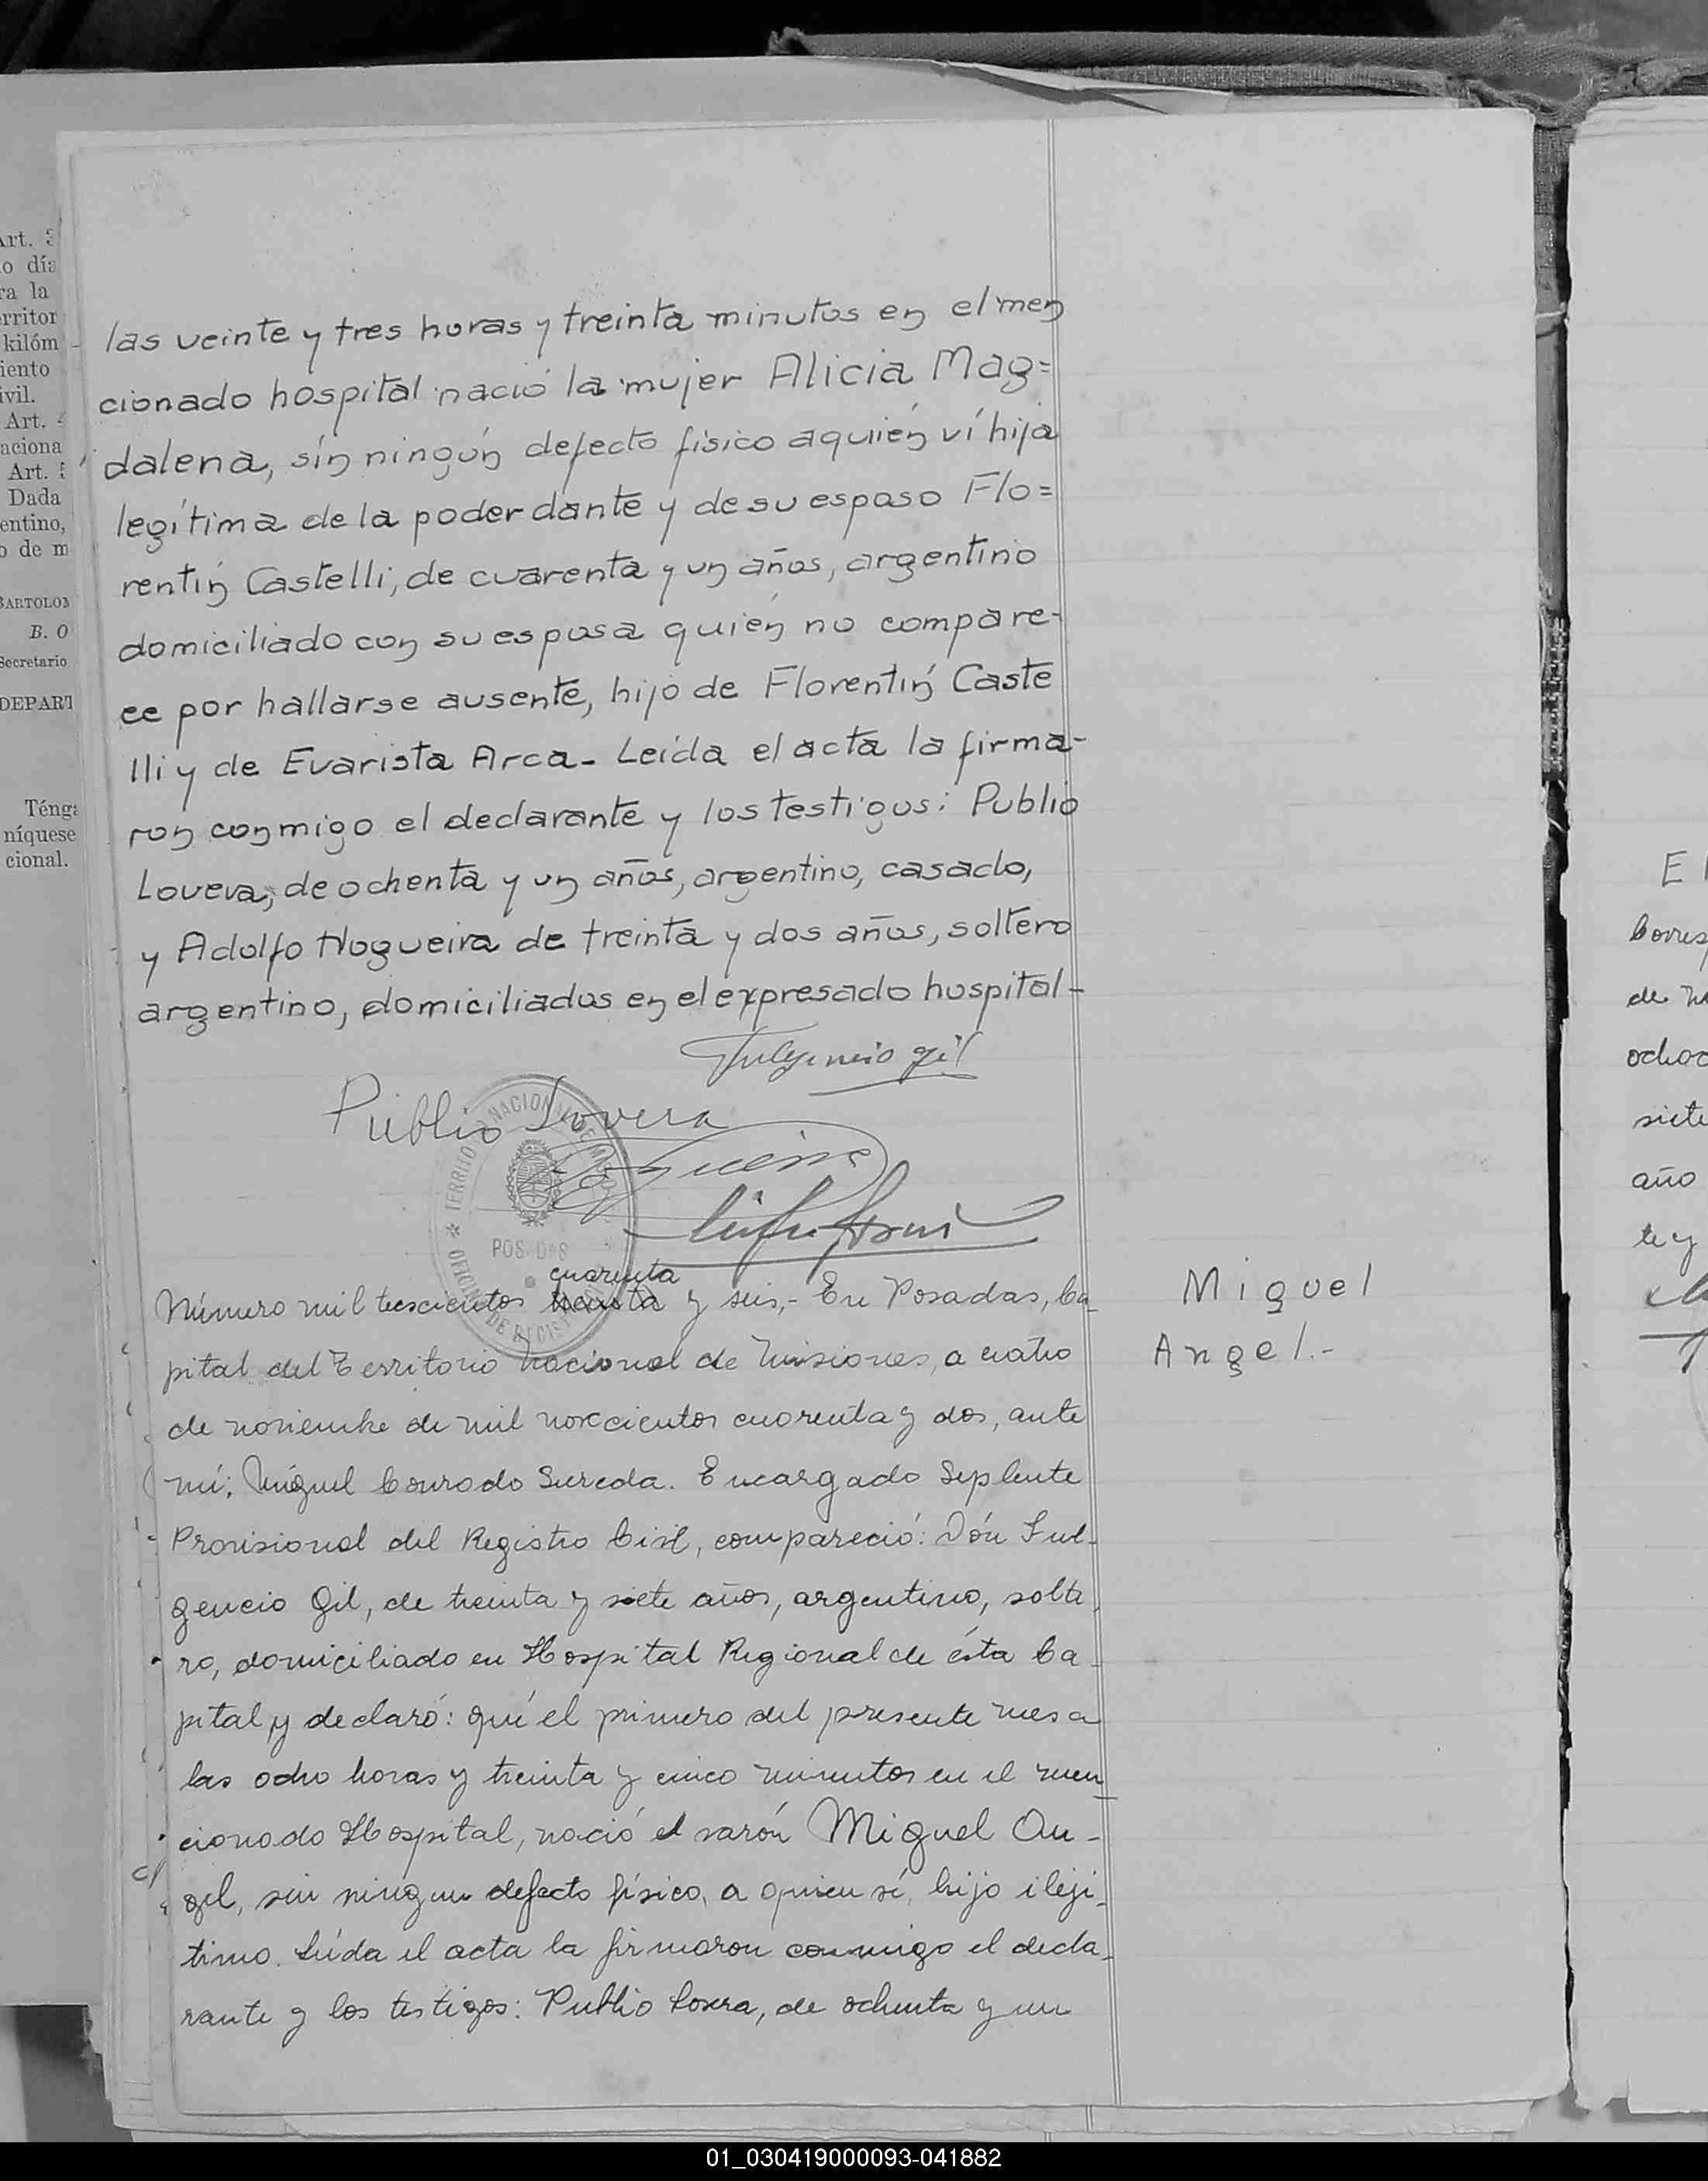 Art. 3
o día
ra la
erritor
kilóm
iento
ivil.
Art. 4
aciona
Art. 5
Dada
entino,
o de m
BARTOLOM
B. O
Secretario
DEPART
Ténga
níquese
cional.
las veinte y tres horas y treinta minutos en el men
cionado hospital nació la mujer Alicia Mag=
dalena, sin ningún defecto físico a quién ví hija
legítima de la poderdante y de su esposo Flo=
rentín Castelli, de cuarenta y un años, argentino
domiciliado con su esposa quién no compare-
ce por hallarse ausente, hijo de Florentín Caste
lli y de Evarista Arca - Leída el acta la firma-
ron conmigo el declarante y los testigos: Publio
Lovera, de ochenta y un años, argentino, casado,
y Adolfo Nogueira de treinta y dos años, soltero
argentino, domiciliados en el expresado hospital -
Fulgencio Gil
Publio Lovera
TERRITO NACIONAL DE
POSADAS
OFICI DE REGIST
cuarenta
Número mil trescientos treinta y seis,- En Posadas, Ca-
pital del Territorio Nacional de Misiones, a cuatro
de noviembre de mil novecientos cuarenta y dos, ante
mí: Miguel Conrado Sureda. Encargado Suplente
Provisional del Registro Civil, compareció: Dón Ful-
gencio Gil, de treinta y siete años, argentino, solte-
ro, domiciliado en Hospital Regional de ésta Ca-
pital y declaró: qué el primero del presente mes a
las ocho horas y treinta y cinco minutos en el men
cionado Hospital, nació el varón Miguel An-
gel, sin ningun defecto físico, a quien ví, hijo ileji-
timo. Leída el acta la firmaron conmigo el decla-
rante y los testigos: Publio Lovera, de ochenta y un
Miguel
Angel.-
E
de
ocho
siete
año
te y
01_030419000093-041882